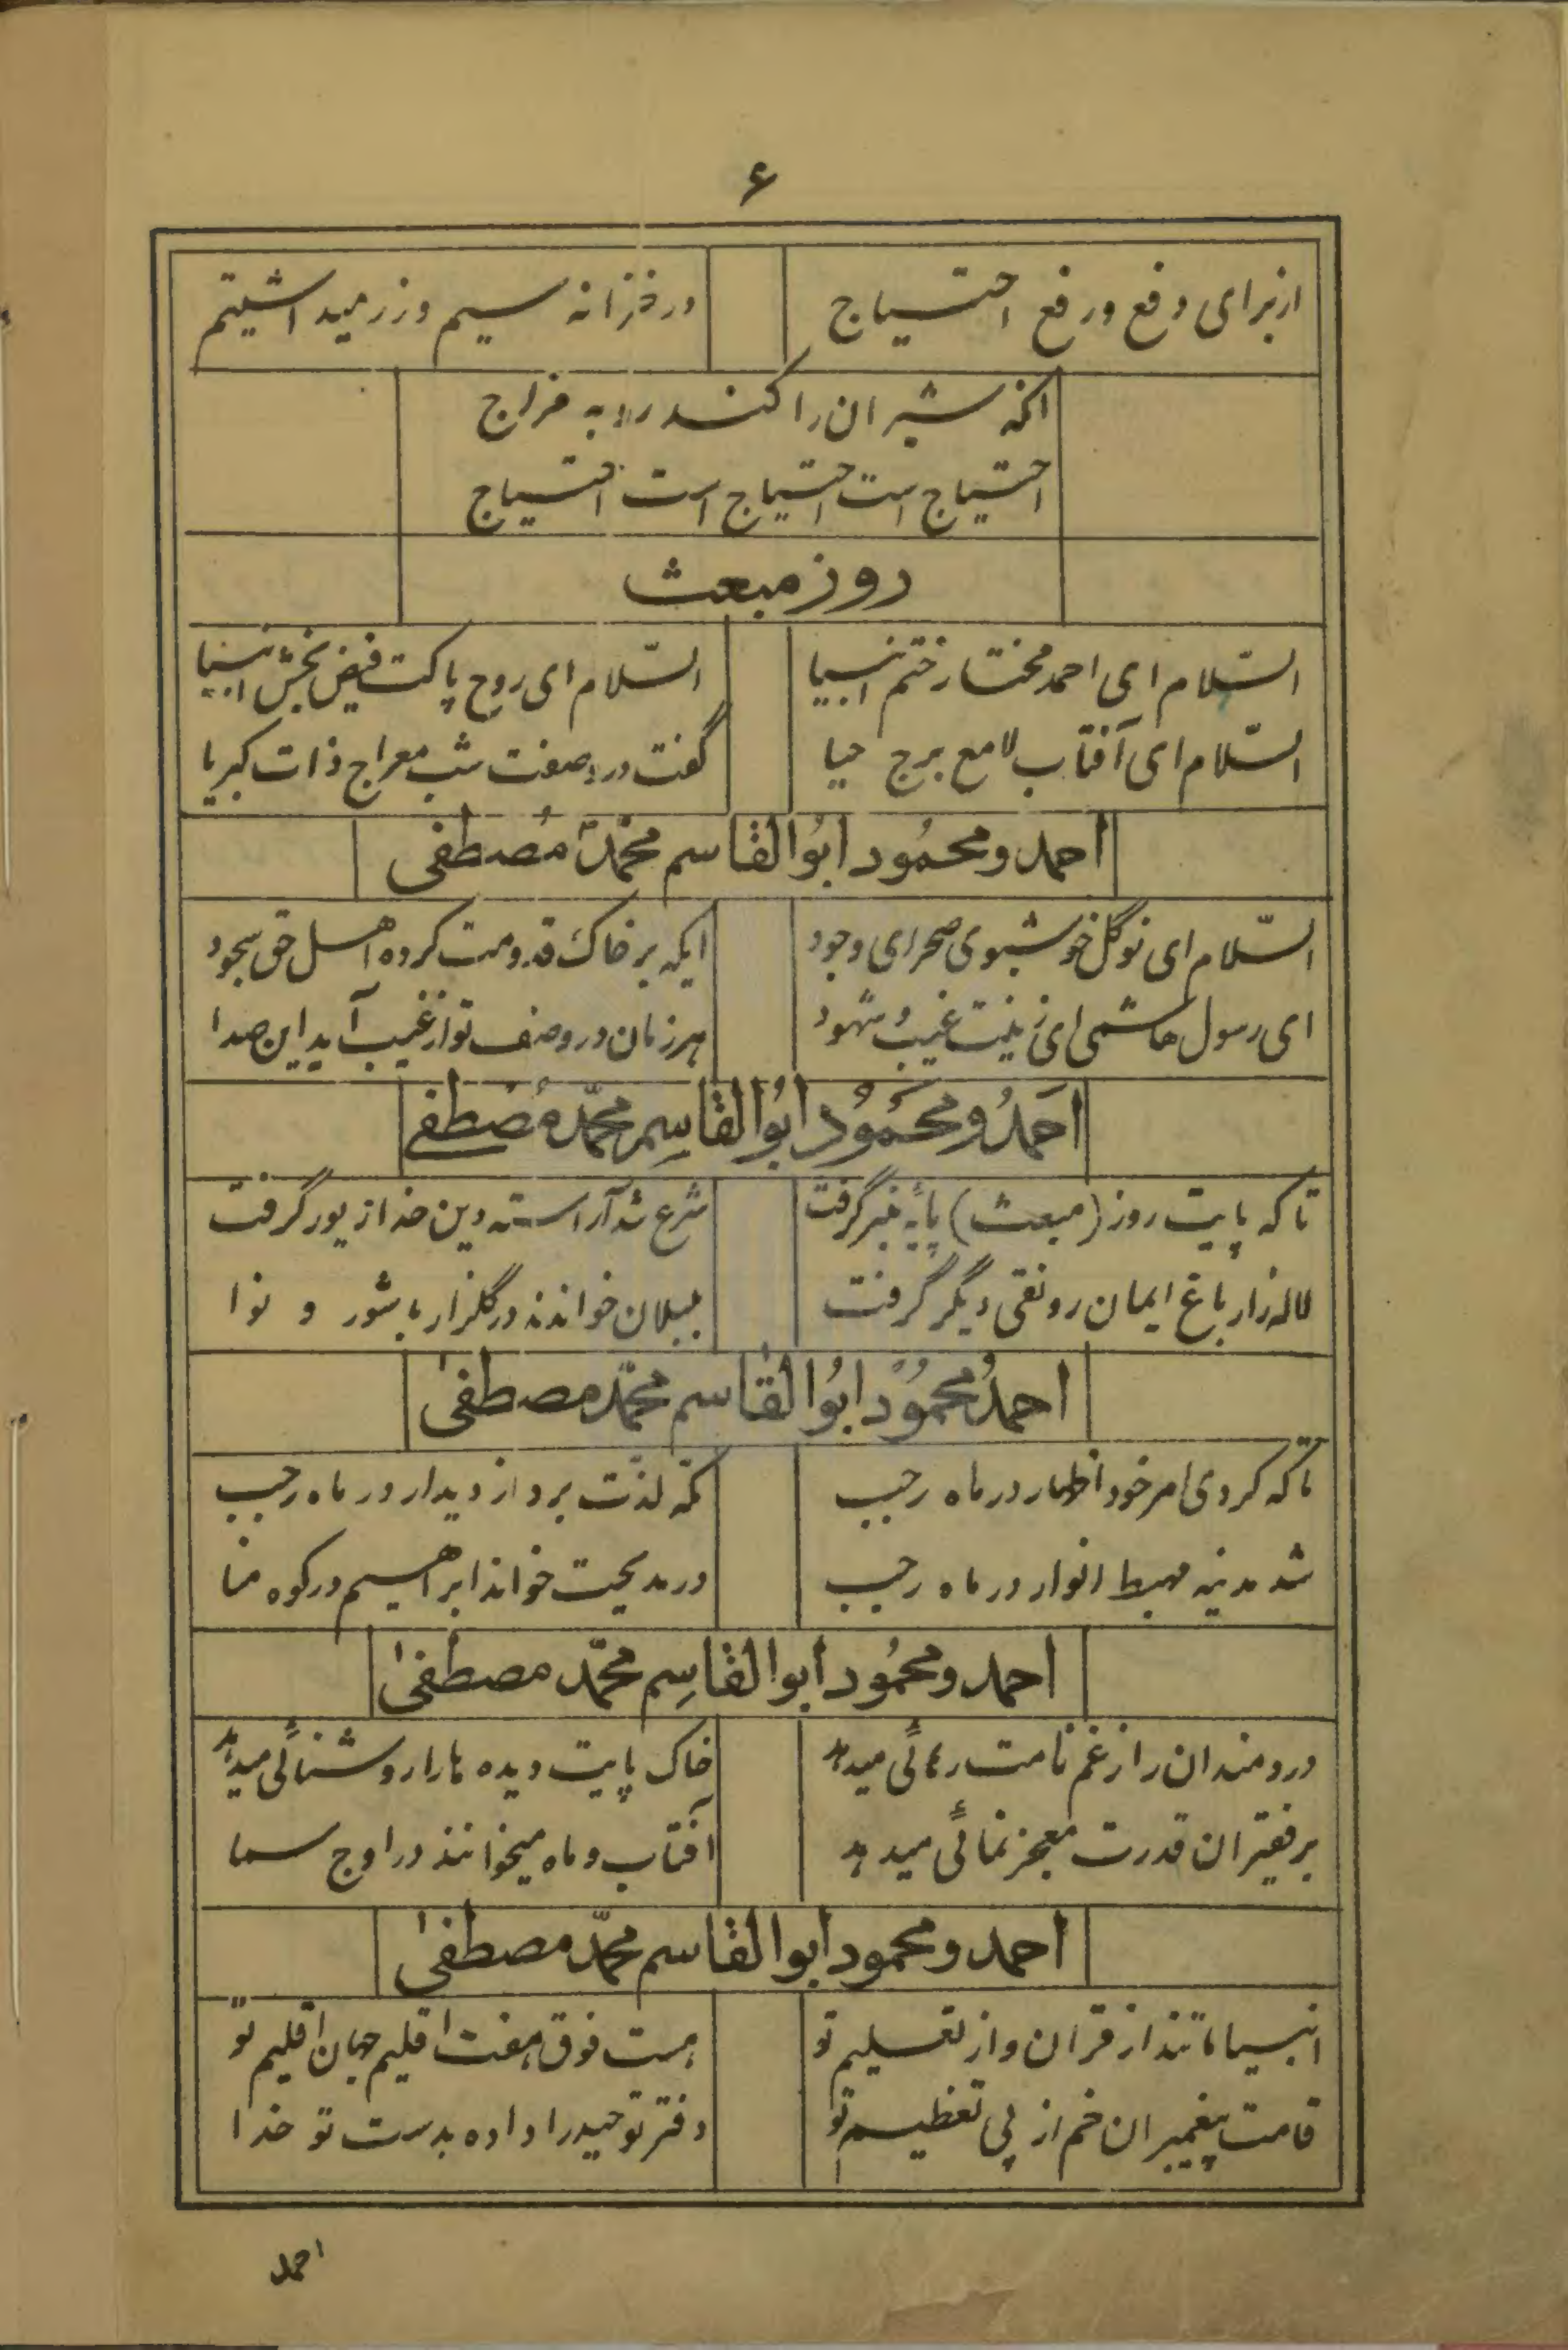 ۶
از برای دفع و رفع احتیاج
در خزانه سیم و زر میداشتیم
آنکه شیران را کند روبه مزاج
احتیاج است احتیاج است احتیاج
روز مبعث
السّلام ای احمد مختار ختم انبیا
السّلام ای روح پاکت فیض بخش انبیا
السّلام ای آفتاب لامع برج حیا
گفت در وصفت شب معراج ذات کبریا
احمد و محمُود ابُوالقاسم محمّد مُصطفی
السّلام ای نوگل خوشبوی صحرای وجود
ایکه بر خاک قدومت کرده اهل حق سجود
ای رسول هاشمی ای زینت غیب و شهود
هر زمان در وصف تو از غیب آید این صدا
احَمدُ و محَموُد ابوُالقاسِم محمّد مُصطفی
تا که پایت روز (مبعث) پایهٔ منبر گرفت
شرع شد آراسته دین خدا زیور گرفت
لاله زار باغ ایمان رونقی دیگر گرفت
بلبلان خواندند در گلزار با شور و نوا
احمدُ محموُد ابوُالقاسم محمّد مصطفیٰ
تا که کردی امر خود اظهار در ماه رجب
مکّه لذّت برد از دیدار در ماه رجب
شد مدینه مهبط انوار در ماه رجب
در مدیحت خواند ابراهیم در کوه منا
احمد و محمُود ابوالقاسِم محمّد مصطفیٰ
دردمندان را ز غم نامت رهائی میدهد
خاک پایت دیده ما را روشنائی میدهد
بر فقیران قدرت معجز نمائی میدهد
آفتاب و ماه میخوانند در اوج سما
احمد و محمود ابوالقاسم محمّد مصطفیٰ
انبیا ماتند از قرآن و از تعلیم تو
هست فوق هفت اقلیم جهان اقلیم تو
قامت پیغمبران خم از پی تعظیم تو
دفتر توحید را داده بدست تو خدا
احمد